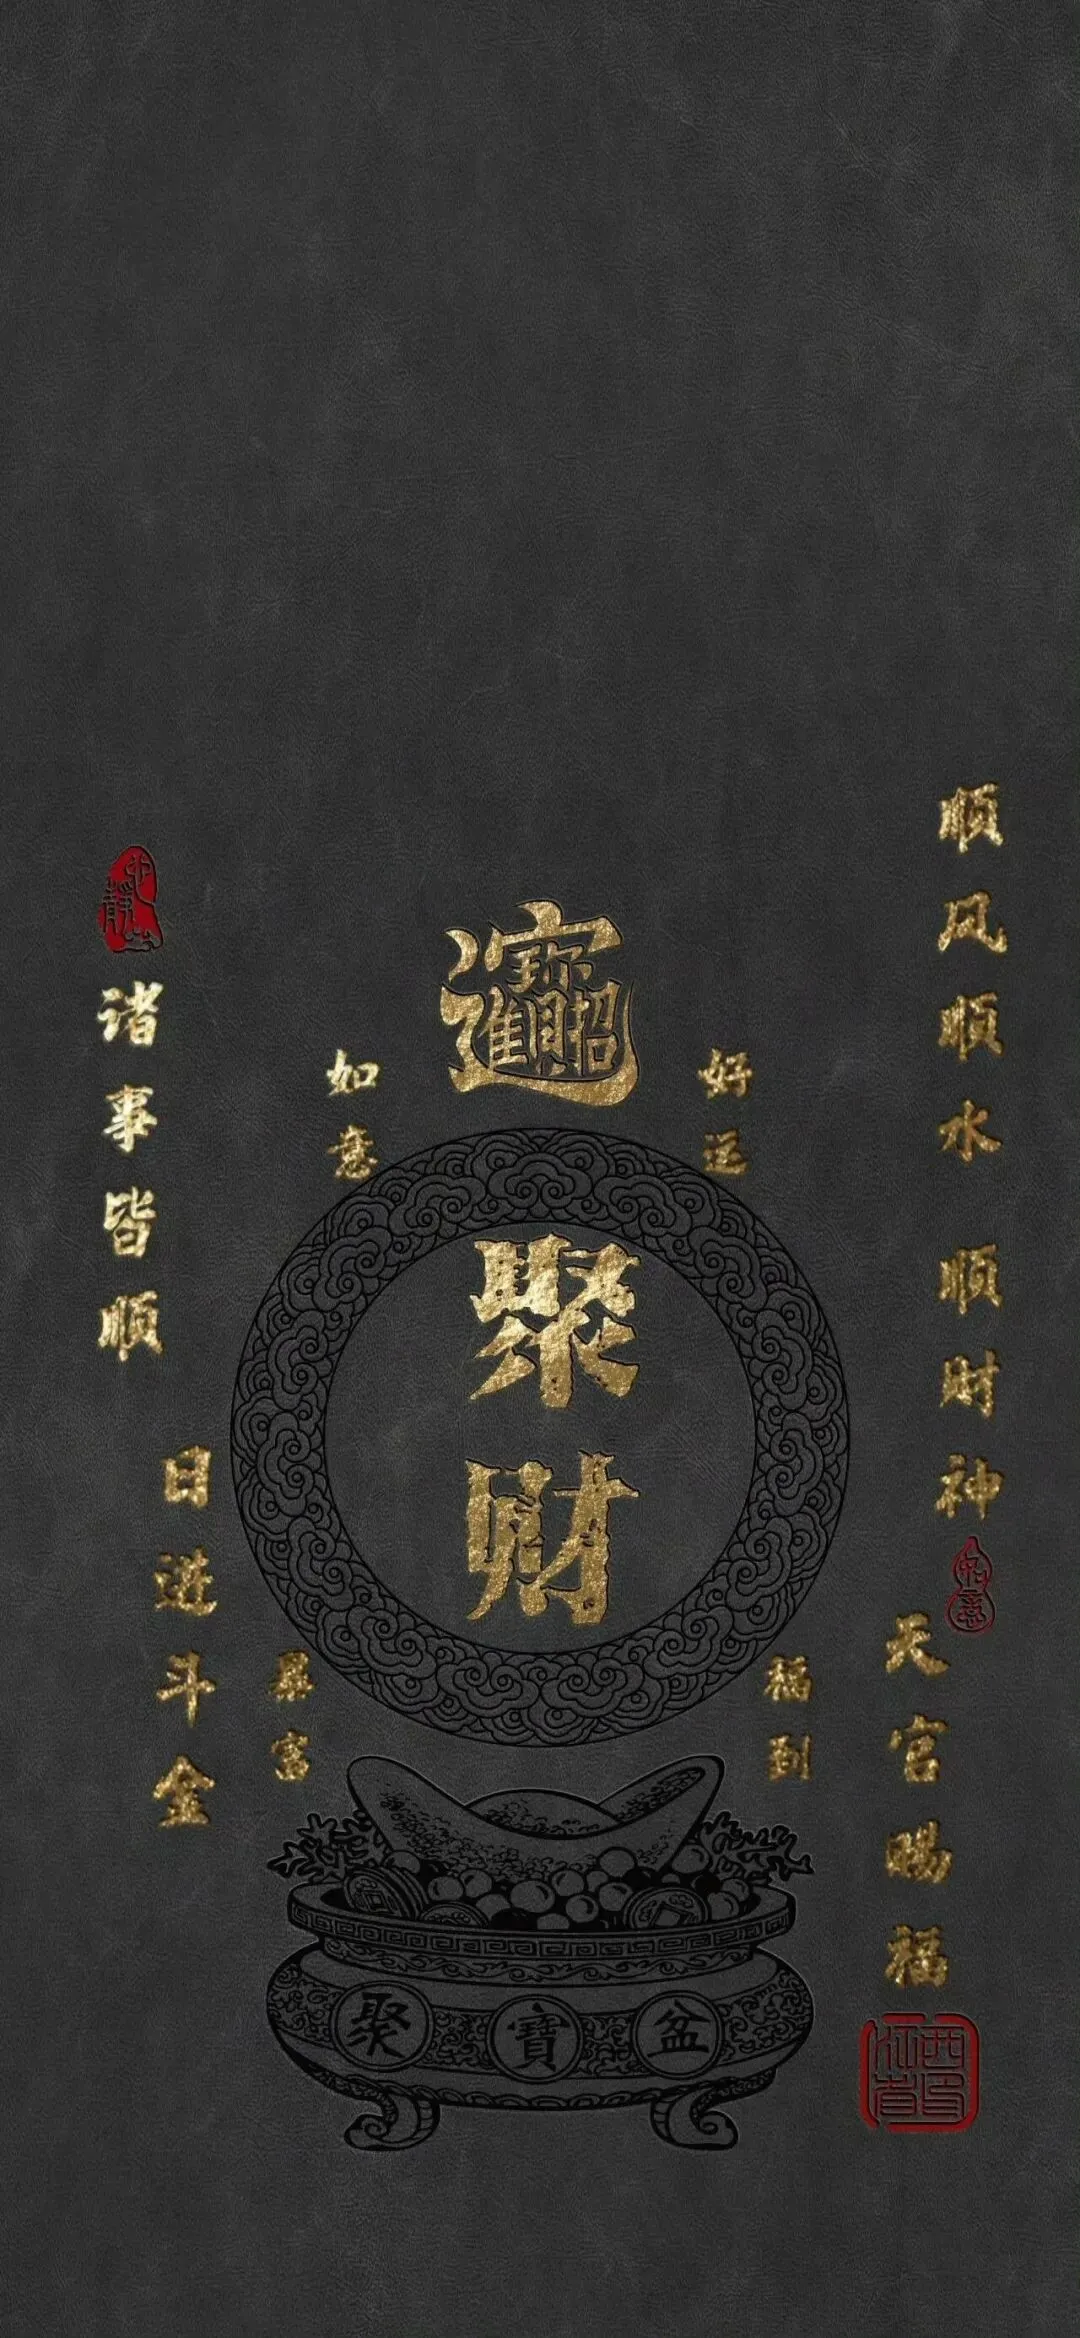 顺风顺水顺财神
天官赐福
如意
好运
招财进宝
聚财
诸事皆顺
日进斗金
暴富
福到
聚寶盆